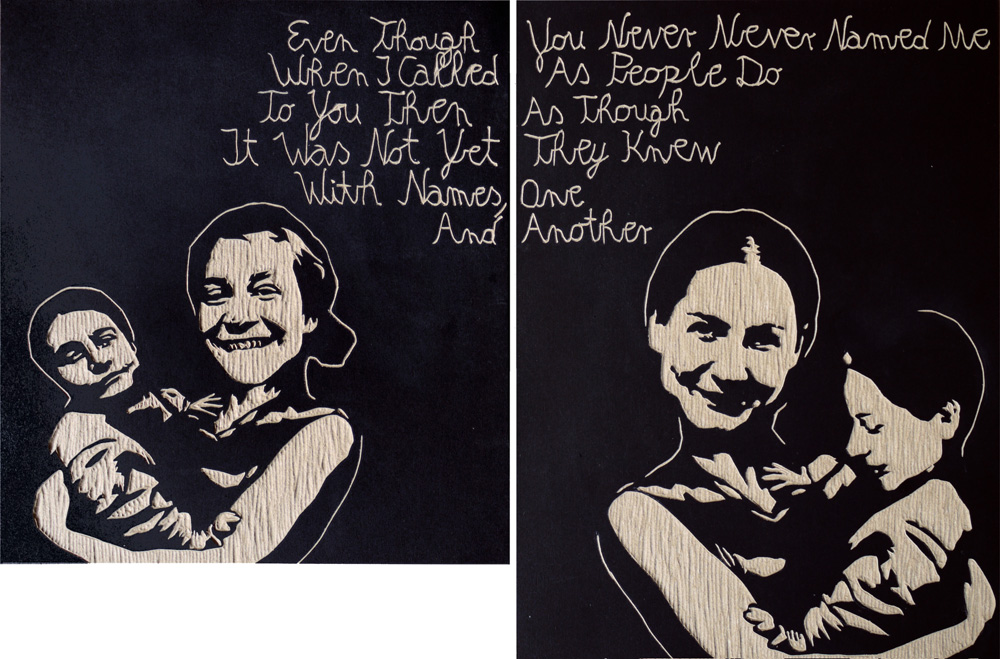 Even Though
When I Called
To You Then
It Was Not Yet
With Names,
And
You Never Never Named Me
As People Do
As Though
They Knew
One
Another